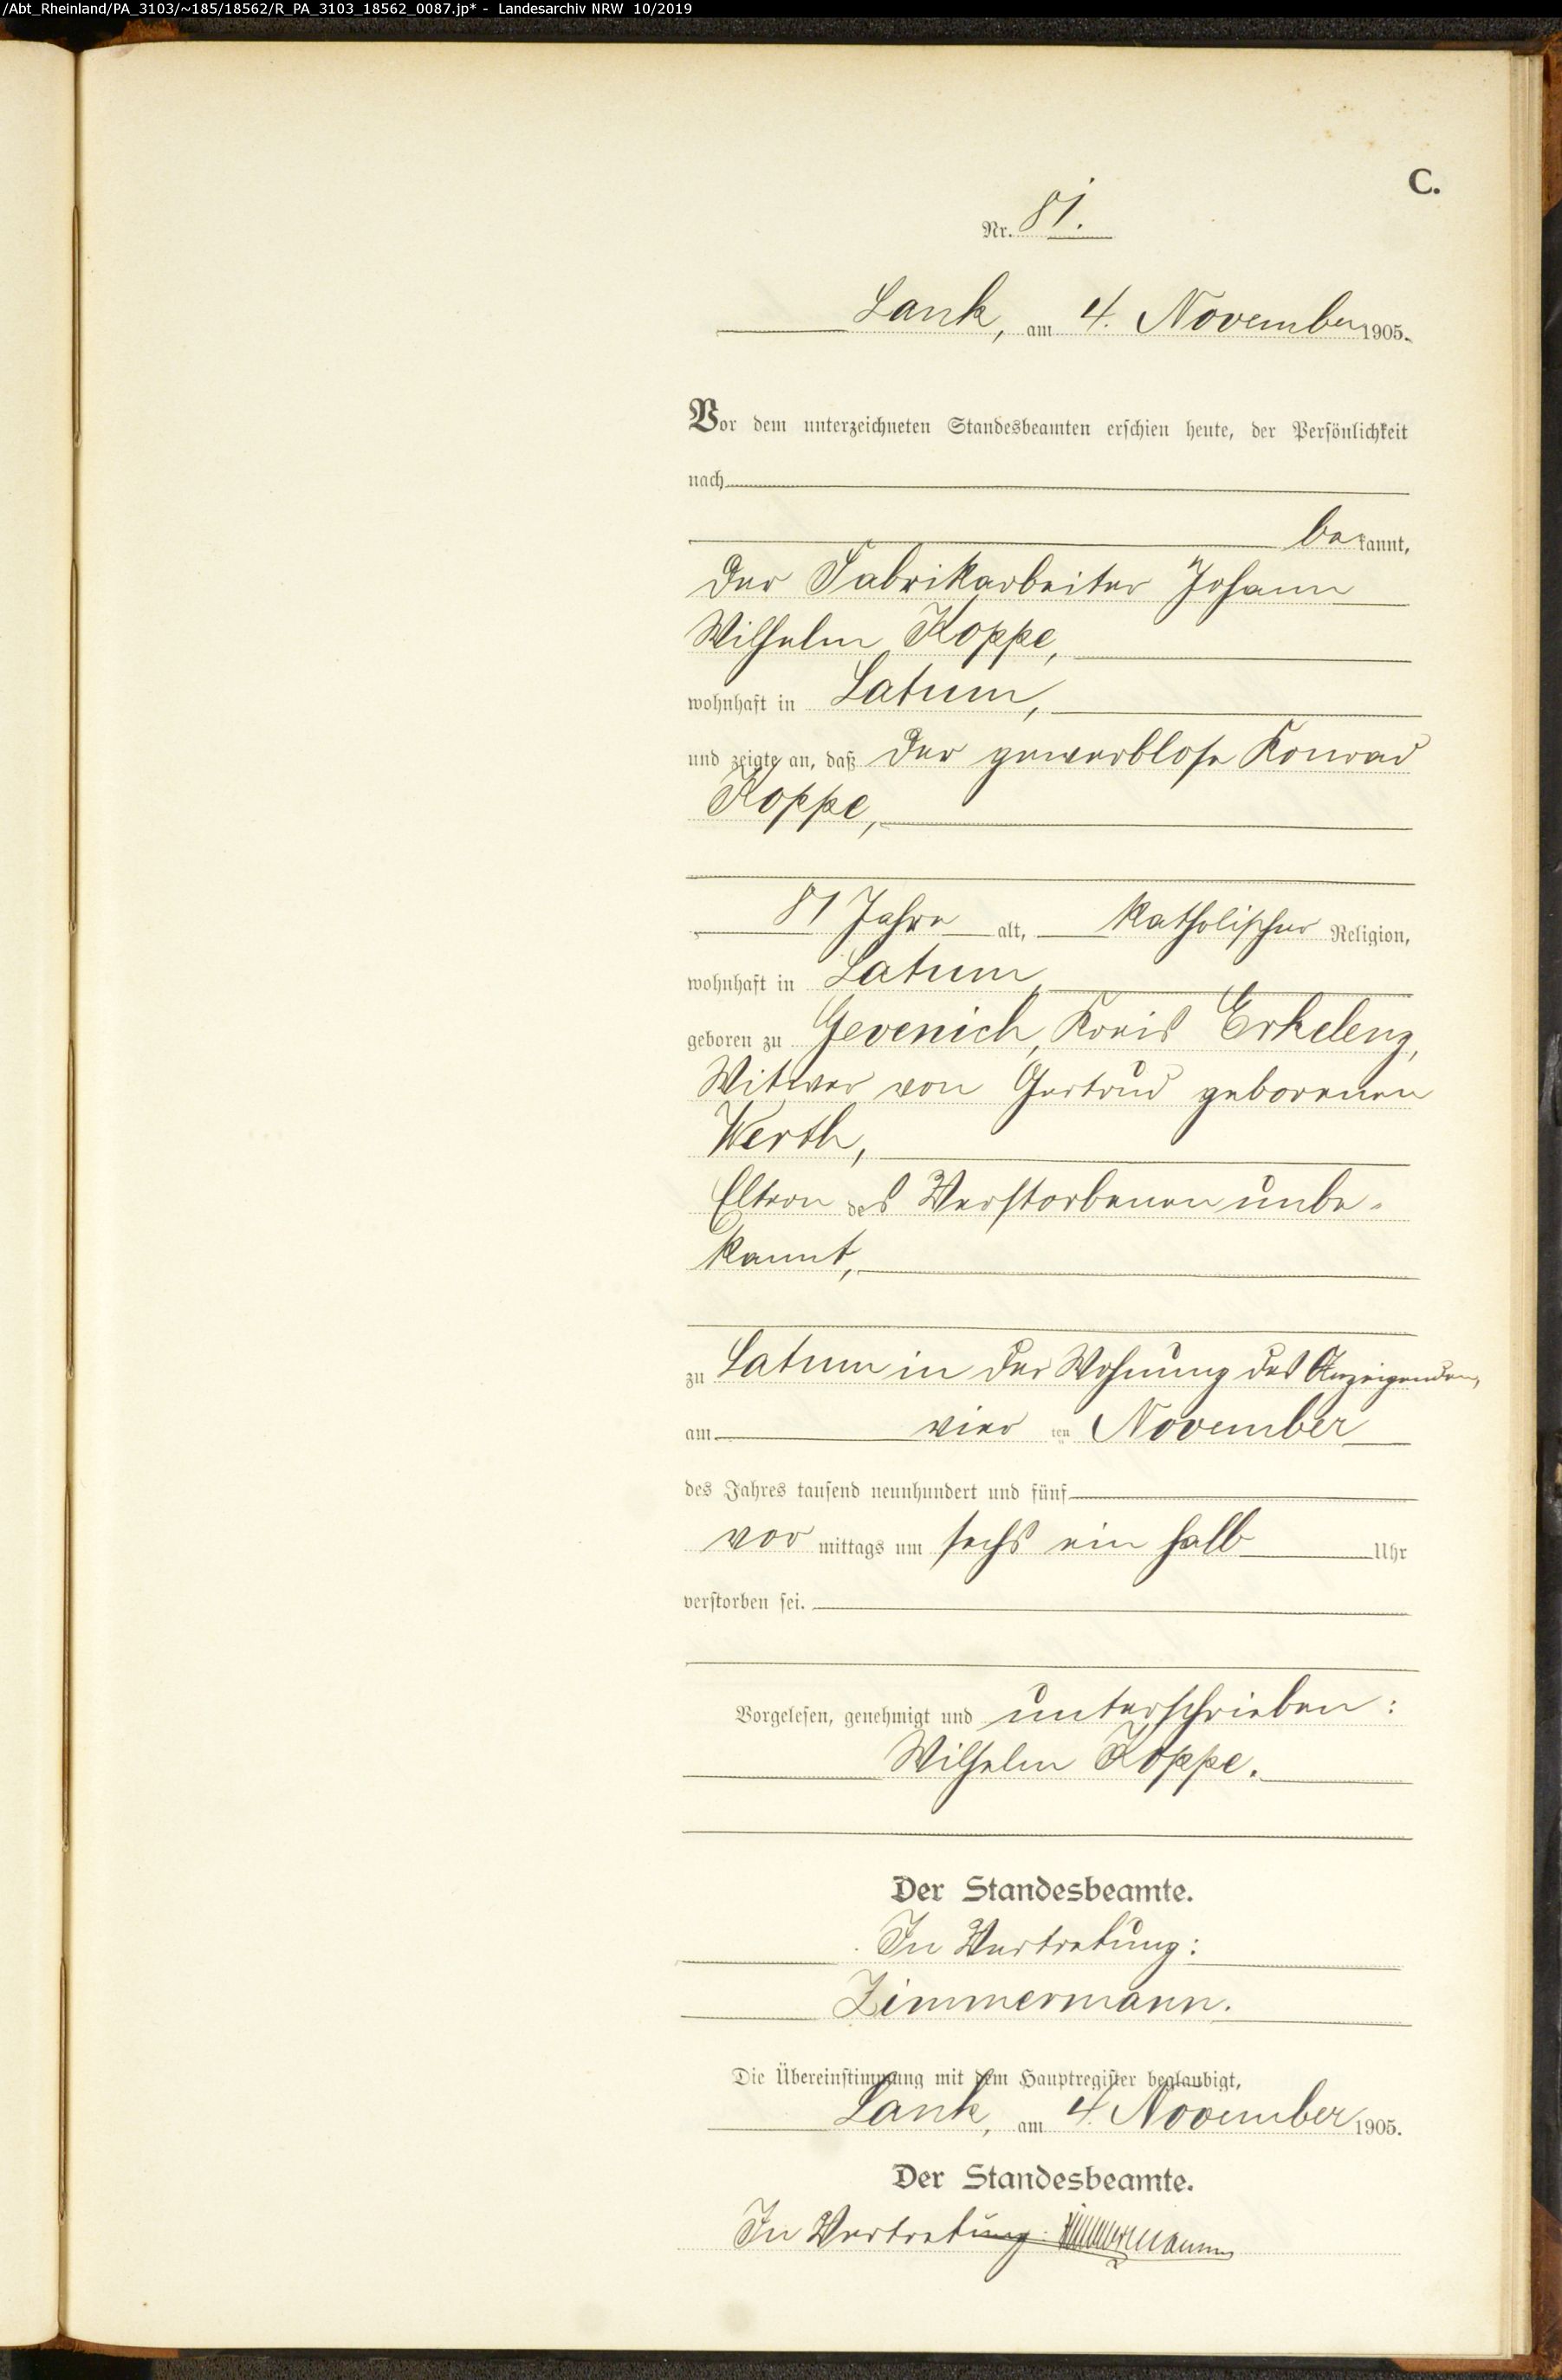 /Abt_Rheinland/PA_3103/~185/18562/R_PA_3103_18562_0087.jp* - Landesarchiv NRW 10/2019
C.
Nr. 81.
Lank, am 4. November 1905.
Vor dem unterzeichneten Standesbeamten erschien heute, der Persönlichkeit
nach
bekannt,
der Fabrikarbeiter Johann
Wilhelm Koppe,
wohnhaft in Latum,
und zeigte an, daß der gewerblose Konrad
Koppe,
81 Jahre alt, katholischer Religion,
wohnhaft in Latum
geboren zu Gevenich, Kreis Erkelenz,
Witwer von Gertrud geborenen
Werth,
Eltern des Verstorbenen unbe-
kannt,
zu Latum in der Wohnung des Anzeigenden,
am vier ten November
des Jahres tausend neunhundert und fünf
vor mittags um sechs ein halb Uhr
verstorben sei.
Vorgelesen, genehmigt und unterschrieben:
Wilhelm Koppe.
Der Standesbeamte.
In Vertretung:
Zimmermann.
Die Übereinstimmung mit dem Hauptregister beglaubigt,
Lank, am 4. November 1905.
Der Standesbeamte.
In Vertretung: Zimmermann